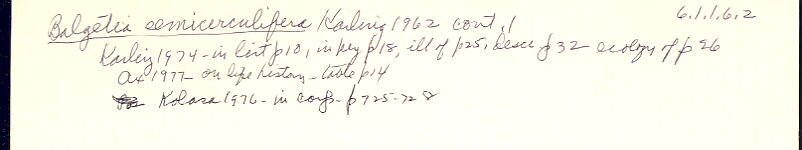 Balgetia semicerculifera Karling 1962 cont. 1 6.1.1.6.2
Karling 1974 - in list p10, in key p18, ill of p25, desc p32 ecology of p26
Ax 1977 on life history - table p14
Kolasa 1976 - in corp. p725-728